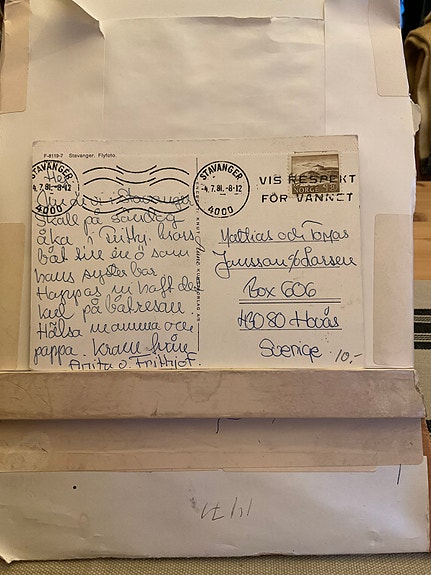 F-8119-7 Stavanger. Flyfoto.
STAVANGER
-4.7.81.-8-12
4000
STAVANGER
-4.7.81.-8-12
4000
VIS RESPEKT
FÖR VANNET
NORGE
Hej
Nu är vi i Stavanger
skall på söndag
åka i Frithjofs
båt till en ö som
hans syster bor.
Hoppas ni haft det
kul på båtresan.
Hälsa mamma och
pappa. Kram från
Anita o. Frithjof.
Mattias och Tobias
Jansson c/o Larsson
Box 606
430 80 Hovås
Sverige
10,-